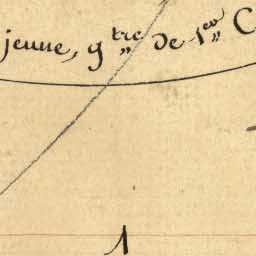 jeune, gtre de 1ere C
1